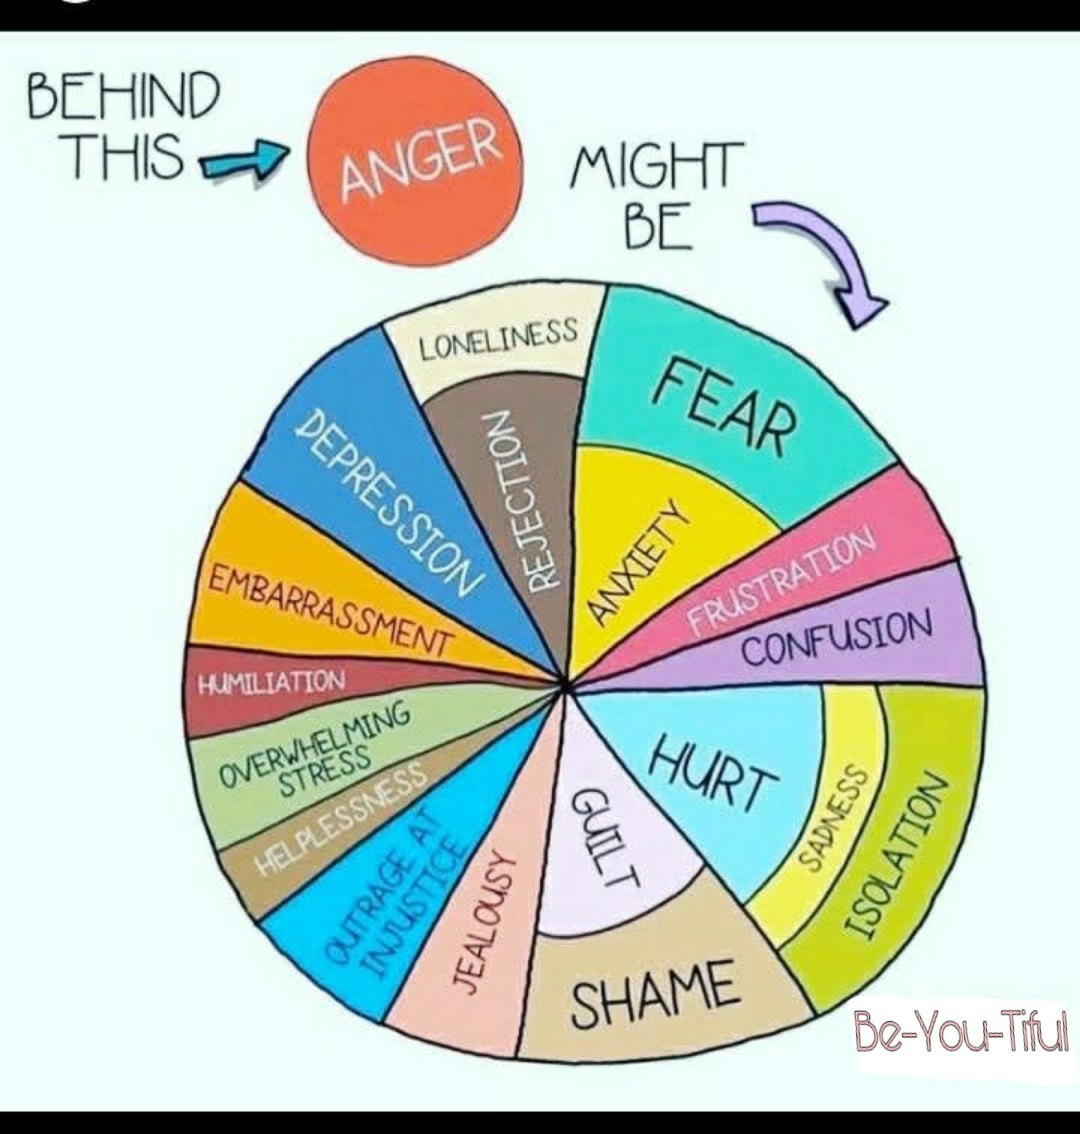 BEHIND
THIS
ANGER
MIGHT
BE
LONELINESS
REJECTION
FEAR
ANXIETY
FRUSTRATION
CONFUSION
HURT
SADNESS
ISOLATION
GUILT
SHAME
JEALOUSY
OUTRAGE AT
INJUSTICE
HELPLESSNESS
OVERWHELMING
STRESS
HUMILIATION
EMBARRASSMENT
DEPRESSION
Be-You-Tiful